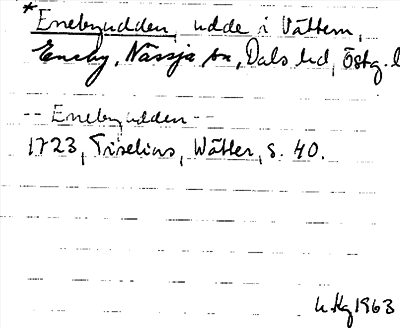 *Enebyudden, udde i Vättern,
Eneby, Nässja sn, Dals hd, Östg. l
-- Enebyudden --
1723, Tiselius, Wätter, s. 40.
1963